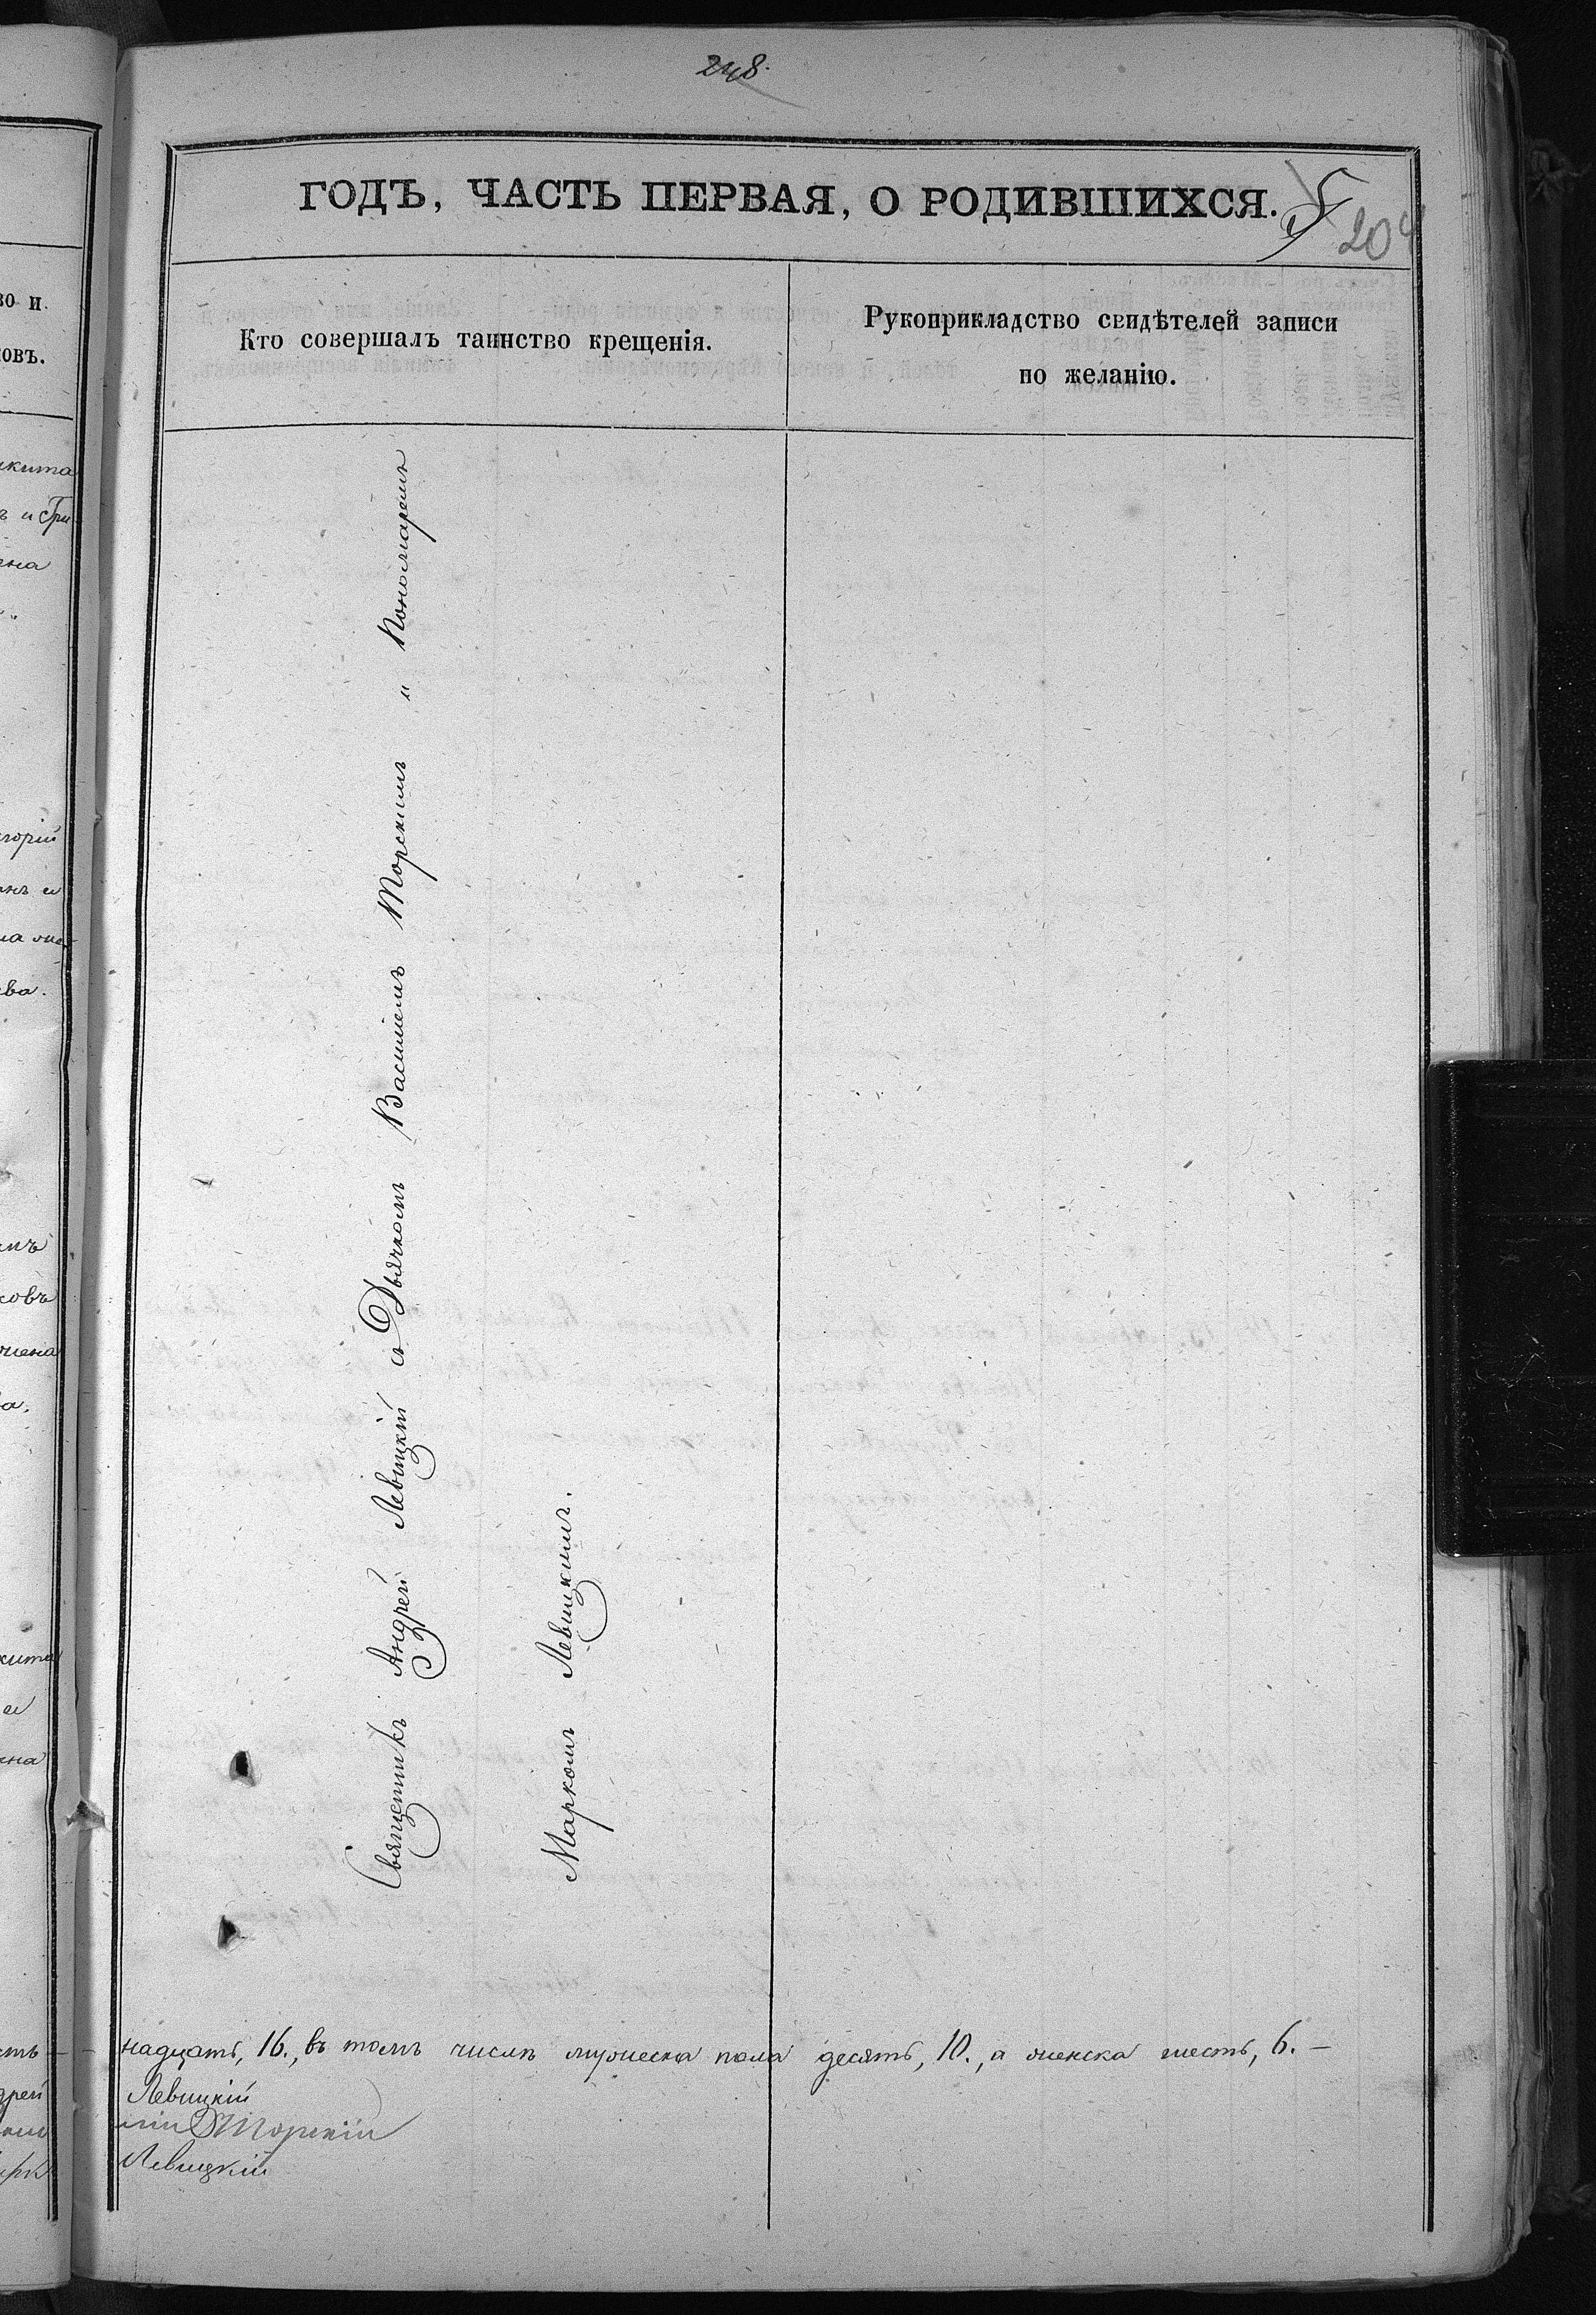 248.
ГОДЪ, ЧАСТЬ ПЕРВАЯ, О РОДИВШИХСЯ.
204
Кто совершалъ таинство крещенія.
Рукоприкладство свидѣтелей записи
по желанію.
Священникъ Андрей Левицкій съ Дьячкомъ Василіемъ Торскимъ и Пономаремъ
Маркомъ Левицкимъ.
надцать, 16., въ томъ числѣ мужеска пола десять, 10., а женска шесть, 6. —
Левицкій
лій Торскій
Левицкій